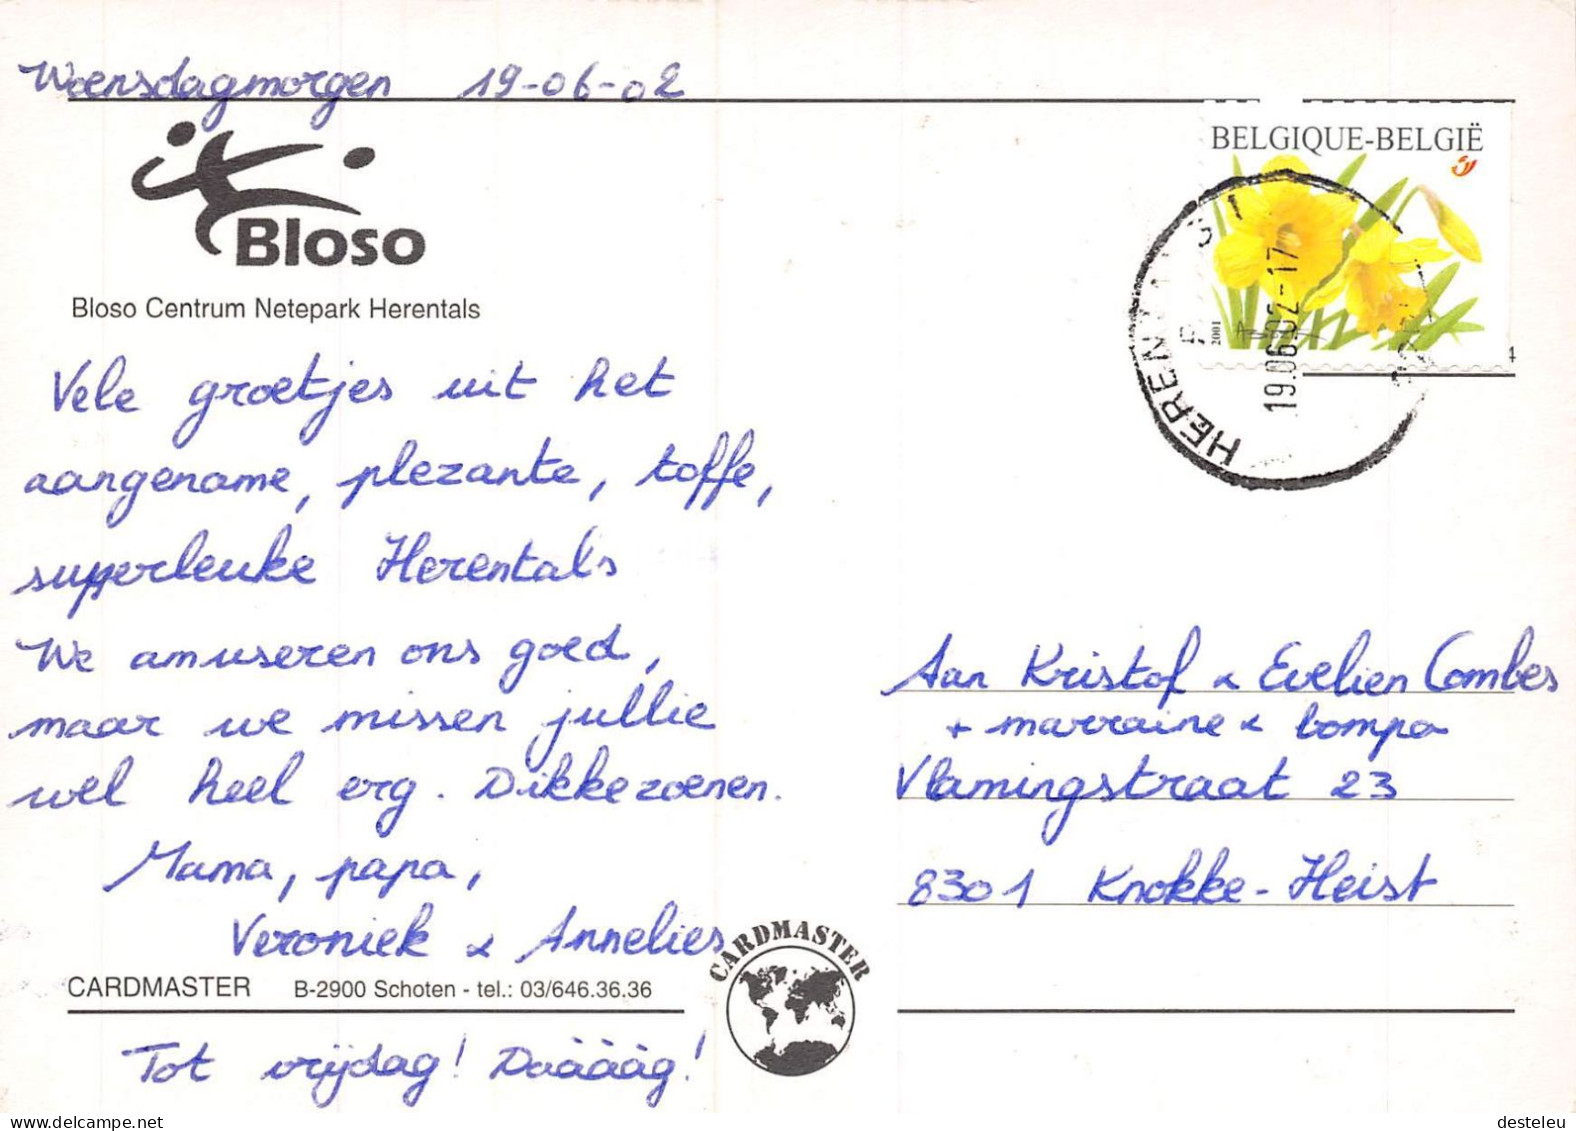 Woensdagmorgen 19-06-02
BELGIQUE-BELGIË
2001
19.06.02-17
Bloso
Bloso Centrum Netepark Herentals
Vele groetjes uit het
aangename, plezante, toffe,
superleuke Herentals
We amuseren ons goed,
maar we missen jullie
wel heel erg. Dikkezoenen.
Mama, papa,
Veroniek & Annelies
Aan Kristof & Evelien Combes
+ marraine & bompa
Vlamingstraat 23
8301 Knokke-Heist
CARDMASTER B-2900 Schoten - tel.: 03/646.36.36
CARDMASTER
Tot vrijdag! Daäääg!
desteleu